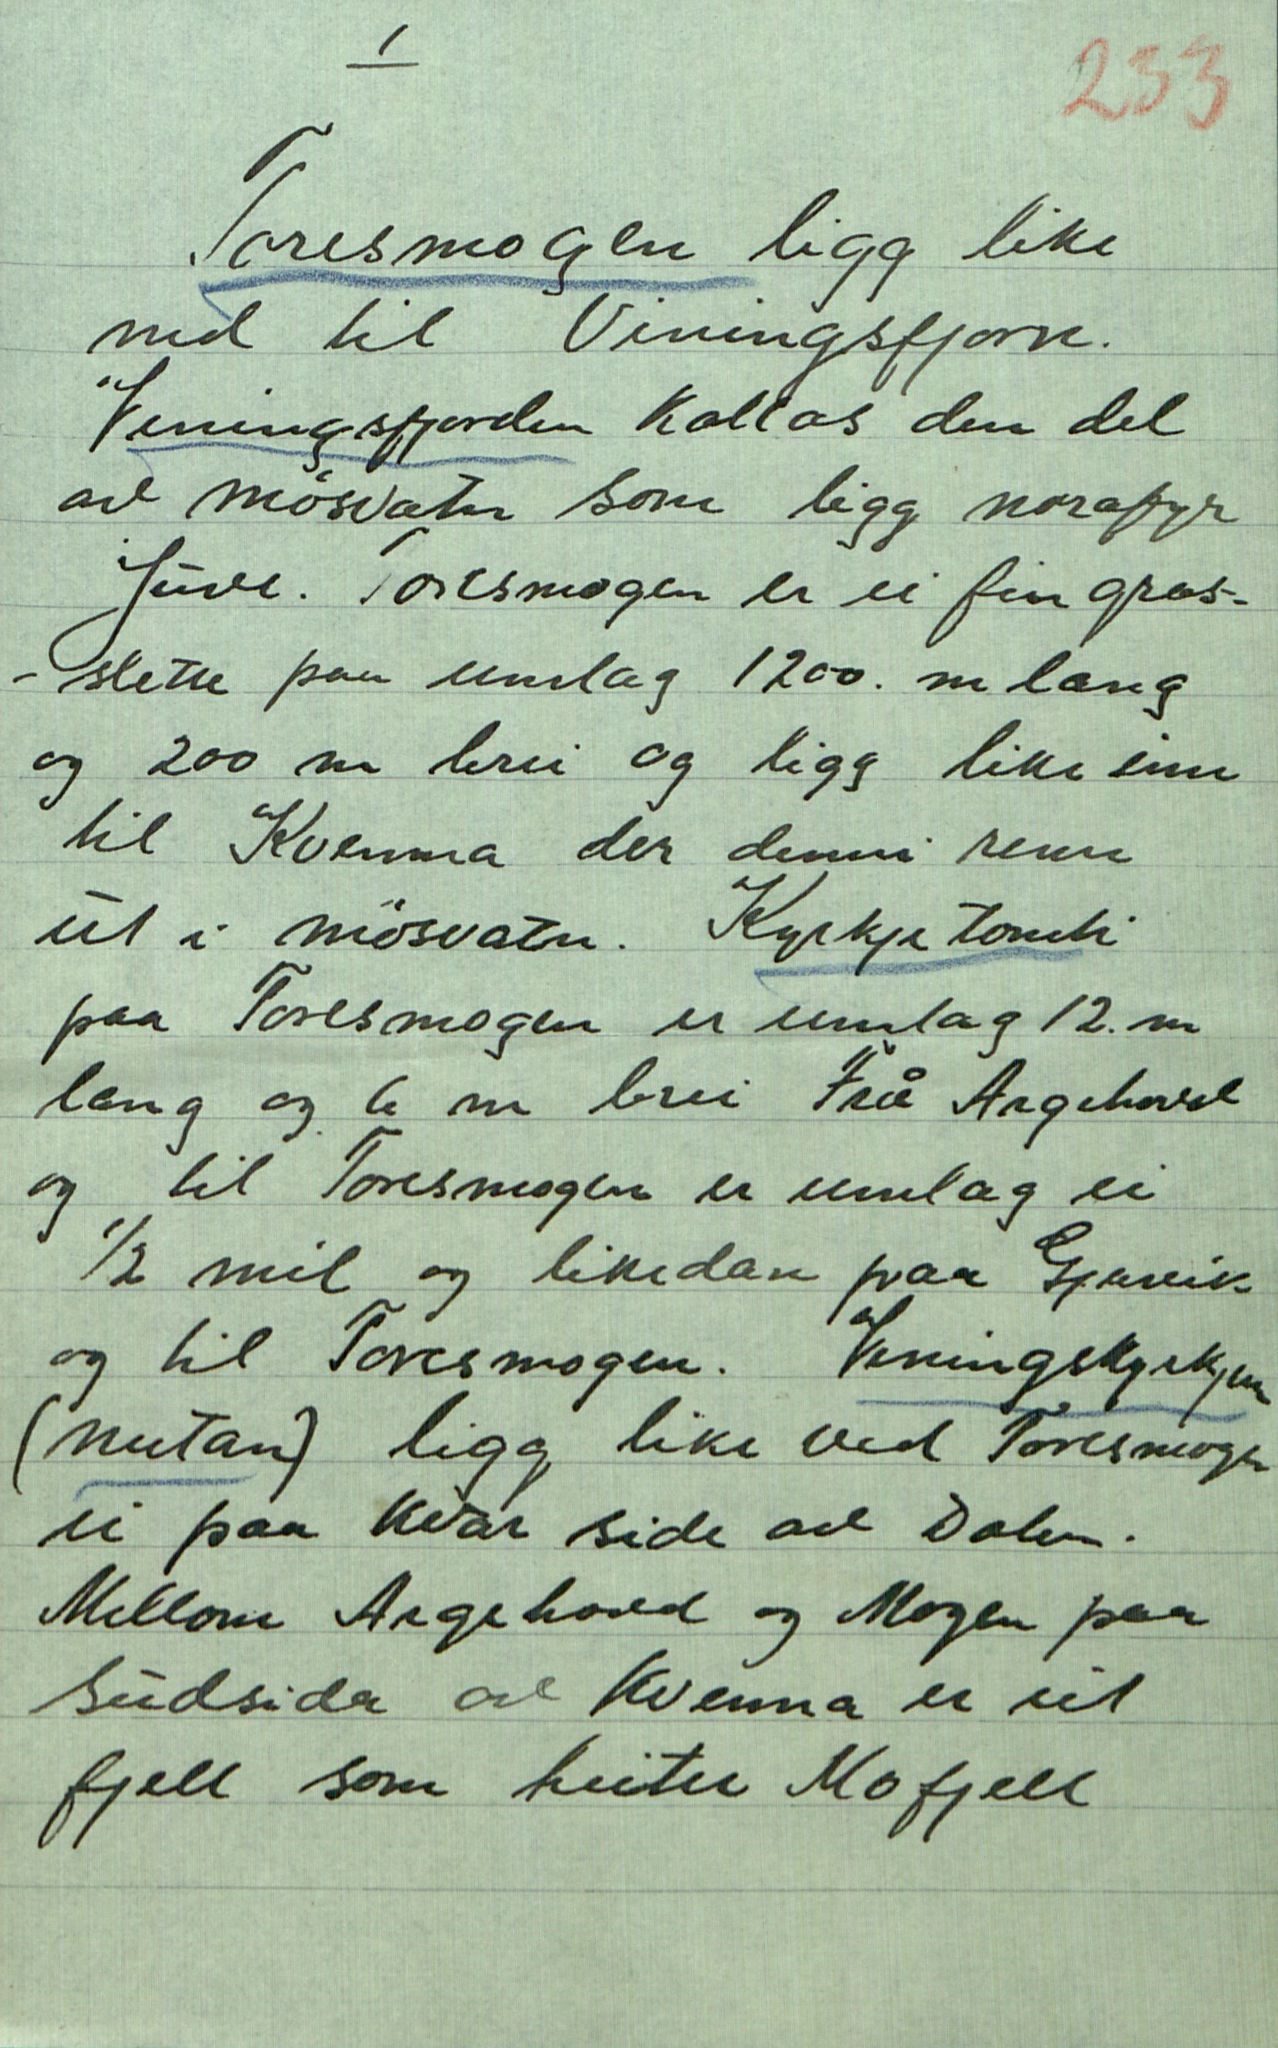 1
233
Toresmogen ligg like
ned til Viningsfjorn.
Veningsfjorden kallas den del
av mösvatn som ligg norafyr
Juve. Toresmogen er ei fin gras-
-slette paa umlag 1200. m lang
og 200 m brei og ligg like inn
til Kvenna der denni renn
ut i mösvatn. Kyrkje tomti
paa Toresmogen er umlag 12. m
lang og 6 m brei Frå Argehovd
og til Toresmogen er umlag ei
1/2 mil og likedan paa Gjuvik
og til Toresmogen. Veningskyrkjun
(nutan) ligg like ved Toresmogen
ei paa kvar side av Dalen.
Millom Argehovd og Mogen paa
sudsida av Kvenna er eit
fjell som heiter Mofjell